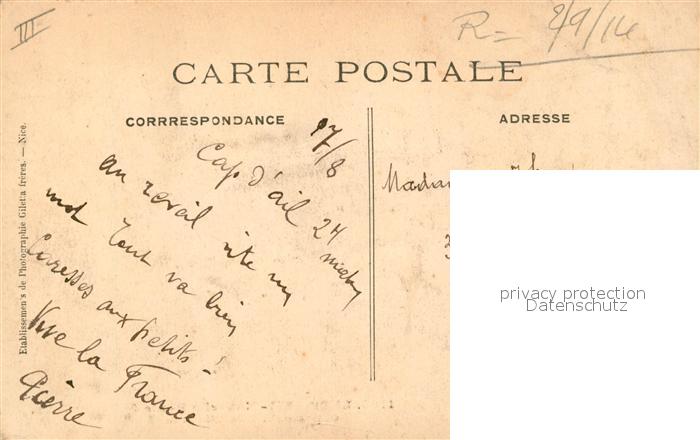 III
R = 2/9/14
CARTE POSTALE
CORRRESPONDANCE
ADRESSE
Etablissements de Photographie Giletta frères. — Nice.
17/8
Cap d'ail 24
au revoir vite un
mot tout va bien
Caresses aux petits !
Vive la France
Pierre
privacy protection
Datenschutz